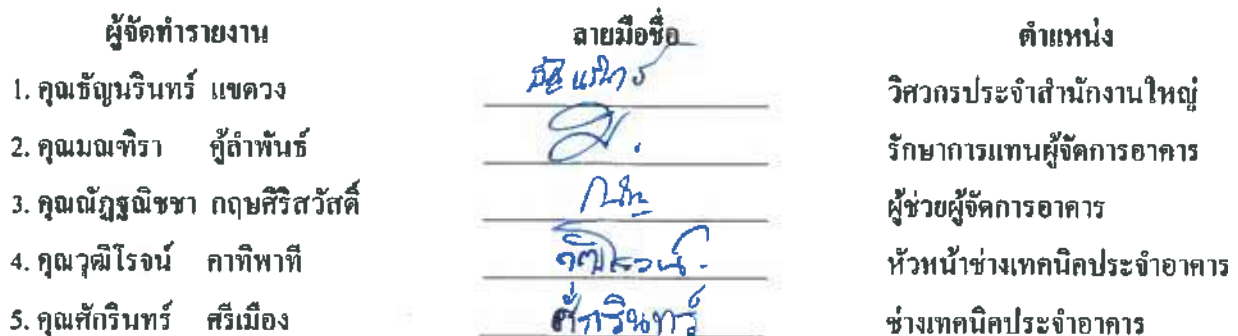 ผู้จัดทำรายงาน ลายมือชื่อ ตำแหน่ง
1. คุณธัญนรินทร์ แขดวง วิศวกรประจำสำนักงานใหญ่
2. คุณมณฑิรา คู้ลำพันธ์ รักษาการแทนผู้จัดการอาคาร
3. คุณณัฏฐณิชชา กฤษศิริสวัสดิ์ ผู้ช่วยผู้จัดการอาคาร
4. คุณวุฒิโรจน์ คาทิพาที วุฒิโรจน์ หัวหน้าช่างเทคนิคประจำอาคาร
5. คุณศักรินทร์ ศรีเมือง ศักรินทร์ ช่างเทคนิคประจำอาคาร